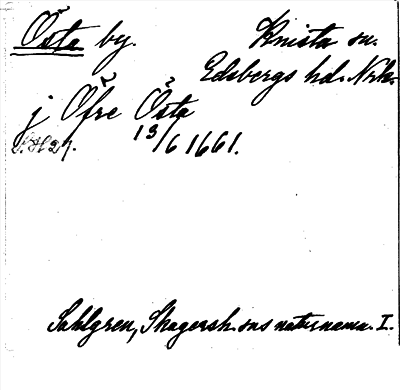 Östa by. Knista sn.
Edsbergs hd. Nrke.
j Öfre Östa
13/6 1661.
Sahlgren, Skagersh. sns naturnamn. I.